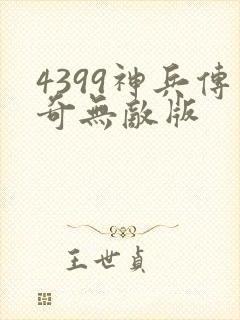 4399神兵傳
奇無敵版
王世貞